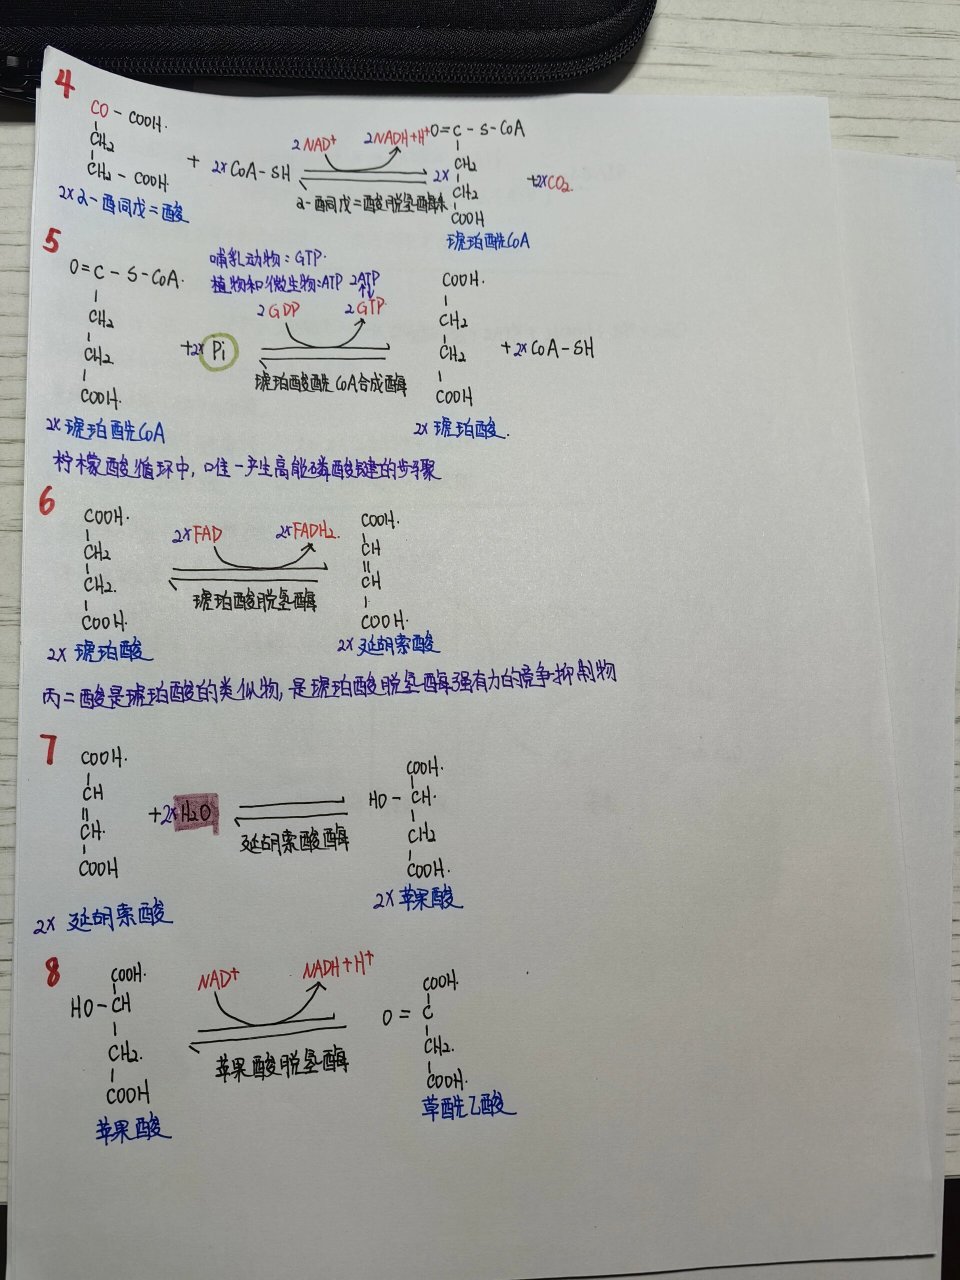 4
CO - COOH.
CH2
CH2 - COOH.
2×α-酮戊二酸
+ 2×CoA-SH
2NAD+ 2NADH+H+
α-酮戊二酸脱氢酶系
2×
O=C - S - CoA
CH2
CH2
COOH
琥珀酰CoA
+2×CO2.
5
O=C - S - CoA.
CH2
CH2
COOH.
2×琥珀酰CoA
+2× Pi
哺乳动物:GTP.
植物和微生物:ATP 2ATP
2GDP 2GTP.
琥珀酸酰CoA合成酶
COOH.
CH2
CH2
COOH
2×琥珀酸.
+2×CoA-SH
柠檬酸循环中,唯一产生高能磷酸键的步骤
6
COOH.
CH2
CH2.
COOH.
2×琥珀酸
2×FAD 2×FADH2.
琥珀酸脱氢酶
COOH.
CH
=
CH
COOH.
2×延胡索酸
丙二酸是琥珀酸的类似物,是琥珀酸脱氢酶强有力的竞争抑制物
7
COOH.
CH
=
CH.
COOH
2×延胡索酸
+2×H2O
延胡索酸酶
COOH.
HO - CH.
CH2
COOH.
2×苹果酸
8
COOH.
HO-CH
CH2.
COOH
苹果酸
NAD+ NADH+H+
苹果酸脱氢酶
COOH.
O=C
CH2.
COOH.
草酰乙酸